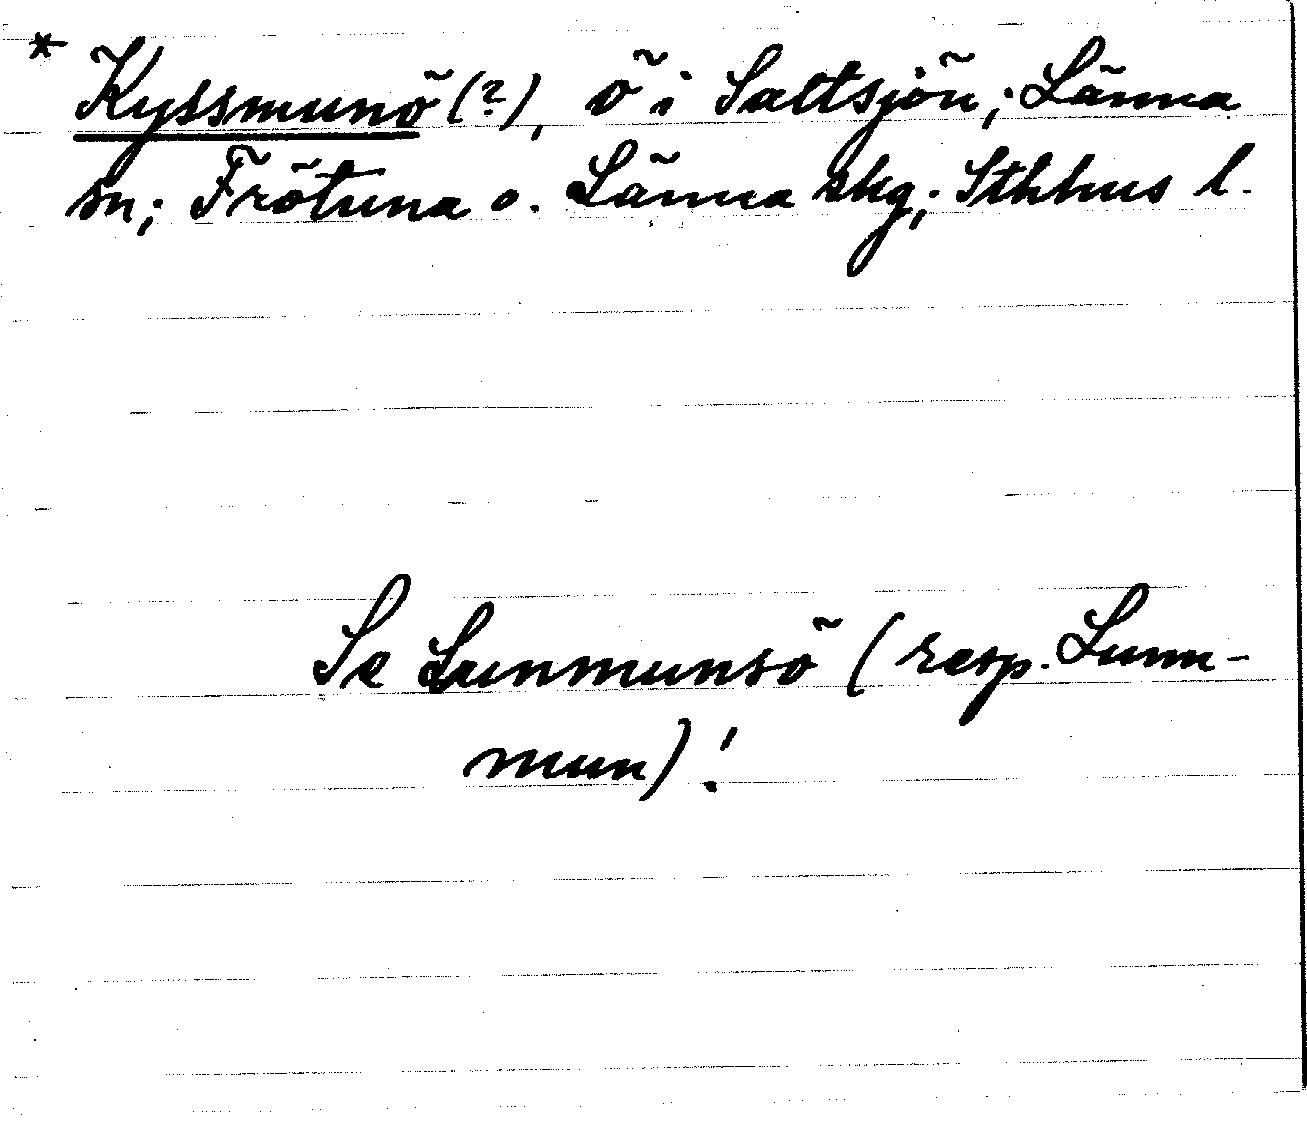 * Kyssmunö (?), ö i Saltsjön; Länna
sn; Frötuna o. Länna skg; Sthlms l.
Se Lunmunsö (resp. Lunn-
mun)!